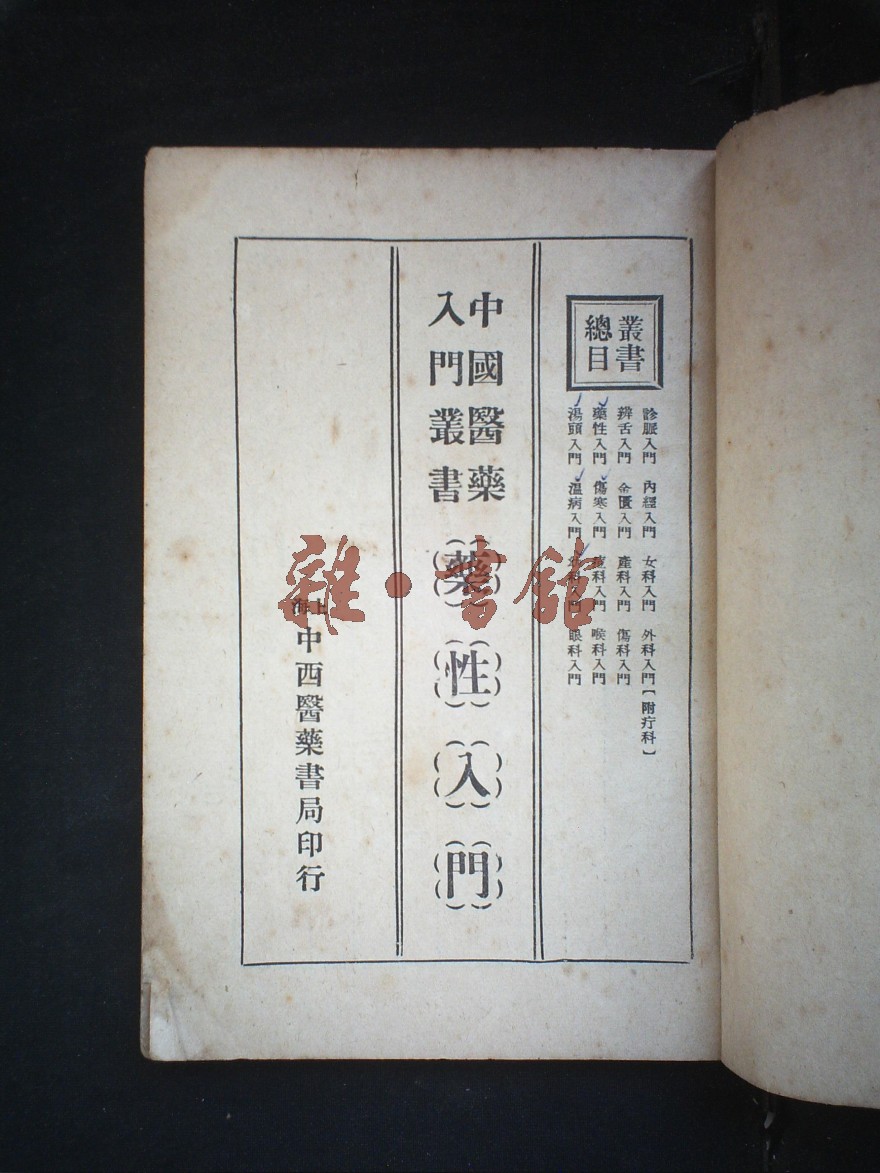 叢書
總目
診脈入門 內經入門 女科入門 外科入門【附疔科】
辨舌入門 金匱入門 產科入門 傷科入門
藥性入門 傷寒入門 科入門 喉科入門
湯頭入門 溫病入門 科入門 眼科入門
中國醫藥
入門叢書
藥性入門
上海
中西醫藥書局印行
雜·書館